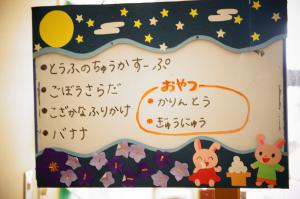 ・とうふのちゅうかすーぷ
・ごぼうさらだ
・こざかなふりかけ
・バナナ
おやつ
・かりんとう
・ぎゅうにゅう